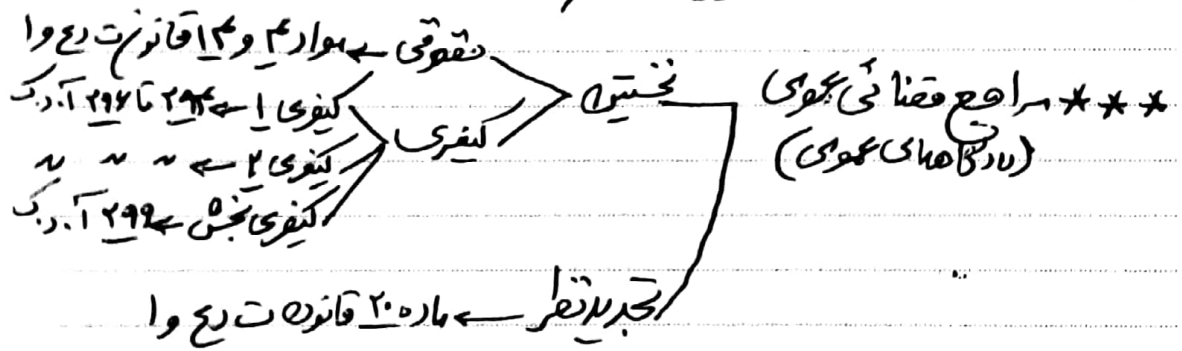 *** مراجع قضائی عمومی
(دادگاههای عمومی)
نخستین
حقوقی ← مواد ۴ و ۱۴ قانون ت د ع و ا
کیفری
کیفری ۱ ← ۲۹۴ تا ۲۹۶ آ.د.ک
کیفری ۲ ← ~ ~ ~
کیفری بخش ← ۲۹۹ آ.د.ک
تجدیدنظر ← ماده ۲۰ قانون ت د ع و ا